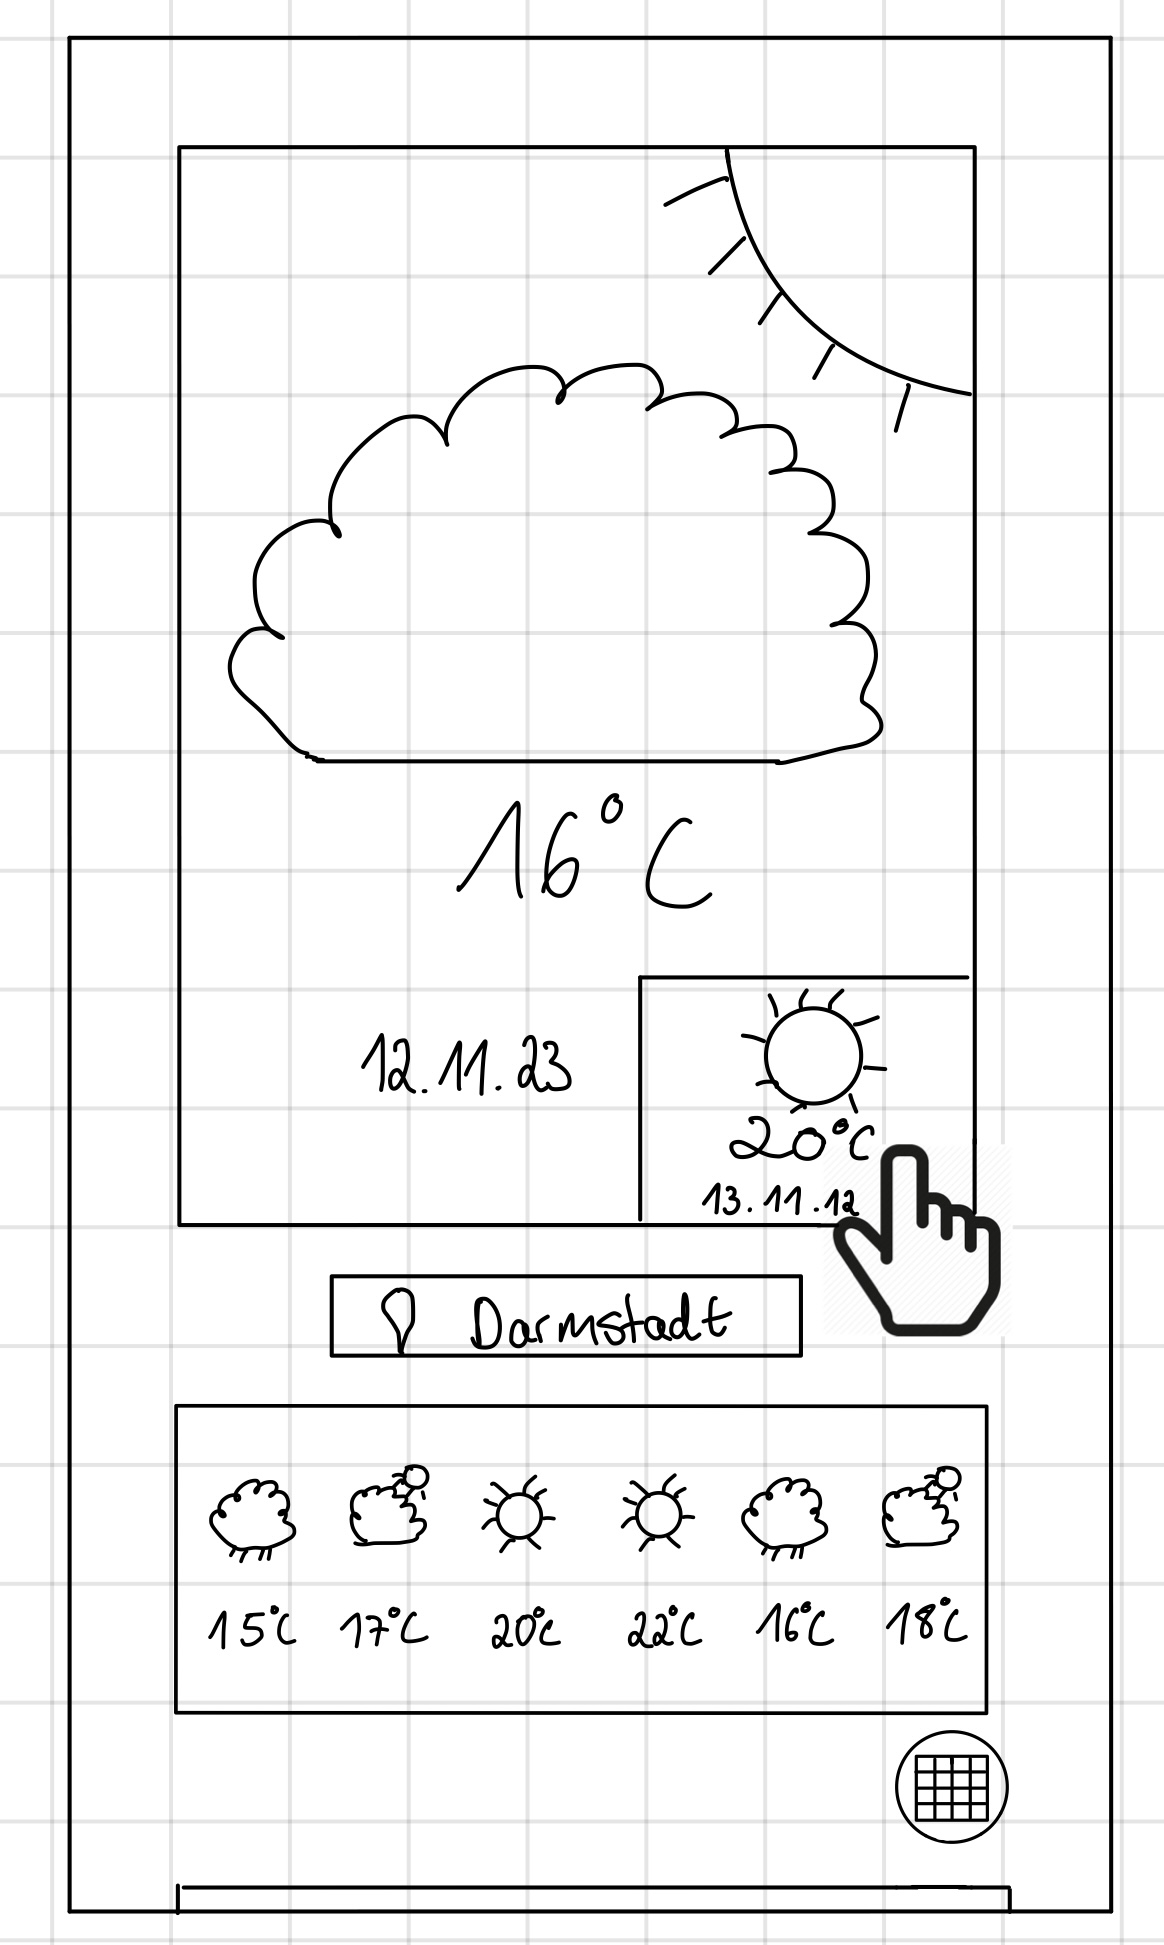 16°C
12.11.23
20°C
13.11.12
Darmstadt
15°C 17°C 20°C 22°C 16°C 18°C